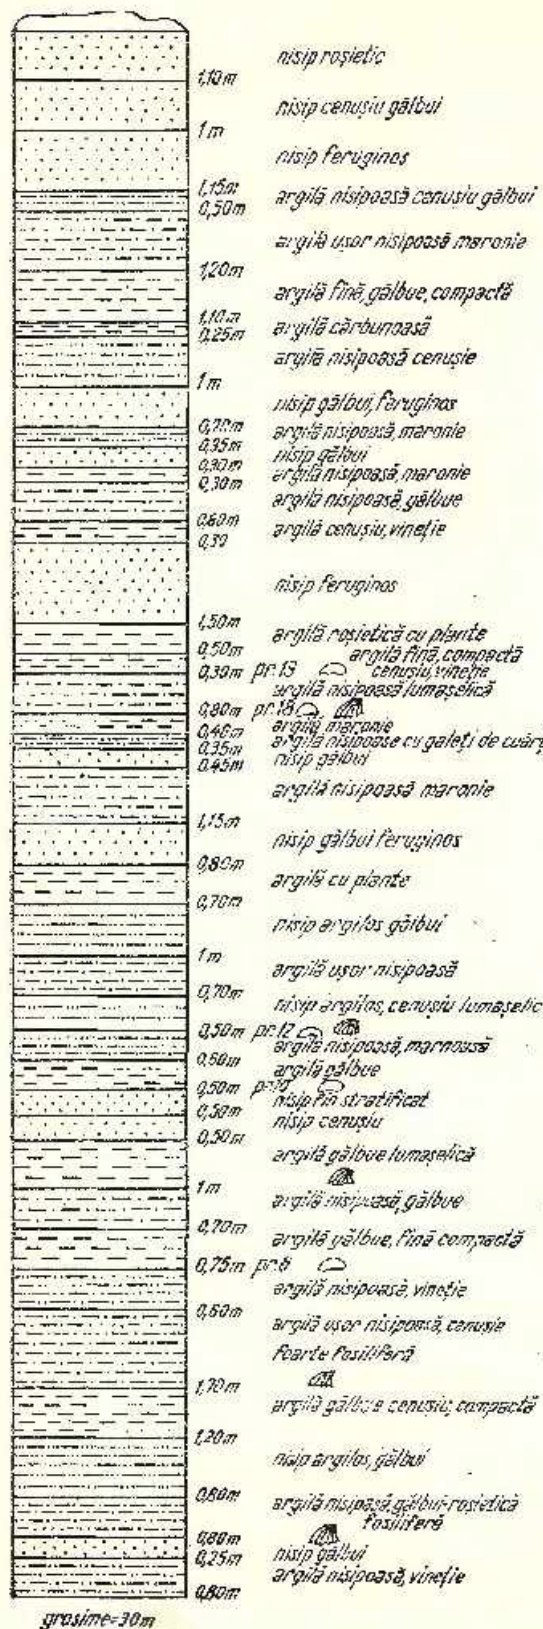 nisip roșietic
1,10m
nisip cenușiu gălbui
1m
nisip feruginos
1,15m
argilă nisipoasă cenușiu gălbui
0,50m
argilă ușor nisipoasă maronie
1,20m
argilă fină, gălbue, compactă
1,10m
argilă cărbunoasă
0,25m
argilă nisipoasă cenușie
1m
nisip gălbui, feruginos
0,70m
argilă nisipoasă, maronie
0,35m
nisip gălbui
0,30m
argilă nisipoasă, maronie
0,30m
argilă nisipoasă, gălbue
0,60m
argilă cenușiu, vineție
0,30
nisip feruginos
1,50m
argilă roșietică cu plante
0,50m
argilă fină, compactă
cenușiu, vineție
0,30m pr.13
argilă nisipoasă lumașelică
0,80m pr.18
argilă maronie
0,40m
argilă nisipoase cu galeți de cuarț
0,35m
nisip gălbui
0,45m
argilă nisipoasă maronie
1,15m
nisip gălbui feruginos
0,80m
argilă cu plante
0,70m
nisip argilos gălbui
1m
argilă ușor nisipoasă
0,70m
nisip argilos, cenușiu lumașelic
0,50m pr.12
argilă nisipoasă, marnoasă
0,60m
argilă gălbue
0,50m
nisip fin stratificat
0,50m
nisip cenușiu
0,50m
argilă gălbue lumașelică
1m
argilă nisipoasă, gălbue
0,70m
argilă gălbue, fină compactă
0,75m pr.6
argilă nisipoasă, vineție
0,60m
argilă ușor nisipoasă, cenușie
foarte fosiliferă
1,70m
argilă gălbue cenușiu, compactă
1,20m
nisip argilos, gălbui
0,80m
argilă nisipoasă, gălbui-roșietică
fosiliferă
0,80m
nisip gălbui
0,25m
argilă nisipoasă, vineție
0,80m
grosime=30m